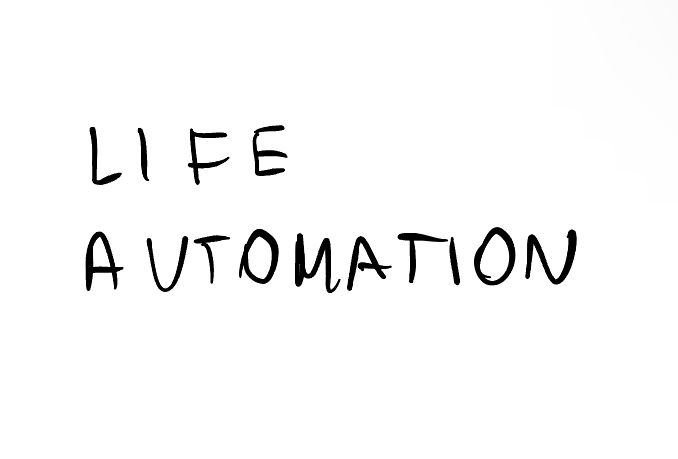 LIFE
AUTOMATION